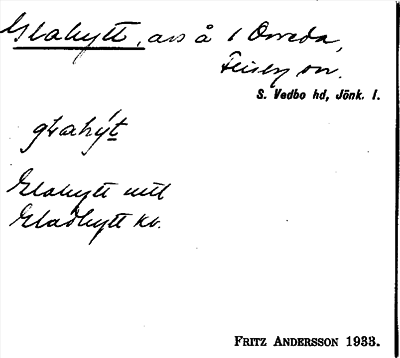 Glahytt, avs å 1 Ovreda,
Flisby sn.
S. Vedbo hd, Jönk. l.
glahýt
Glahytt mtl
Gladhytt kv.
FRITZ ANDERSSON 1933.